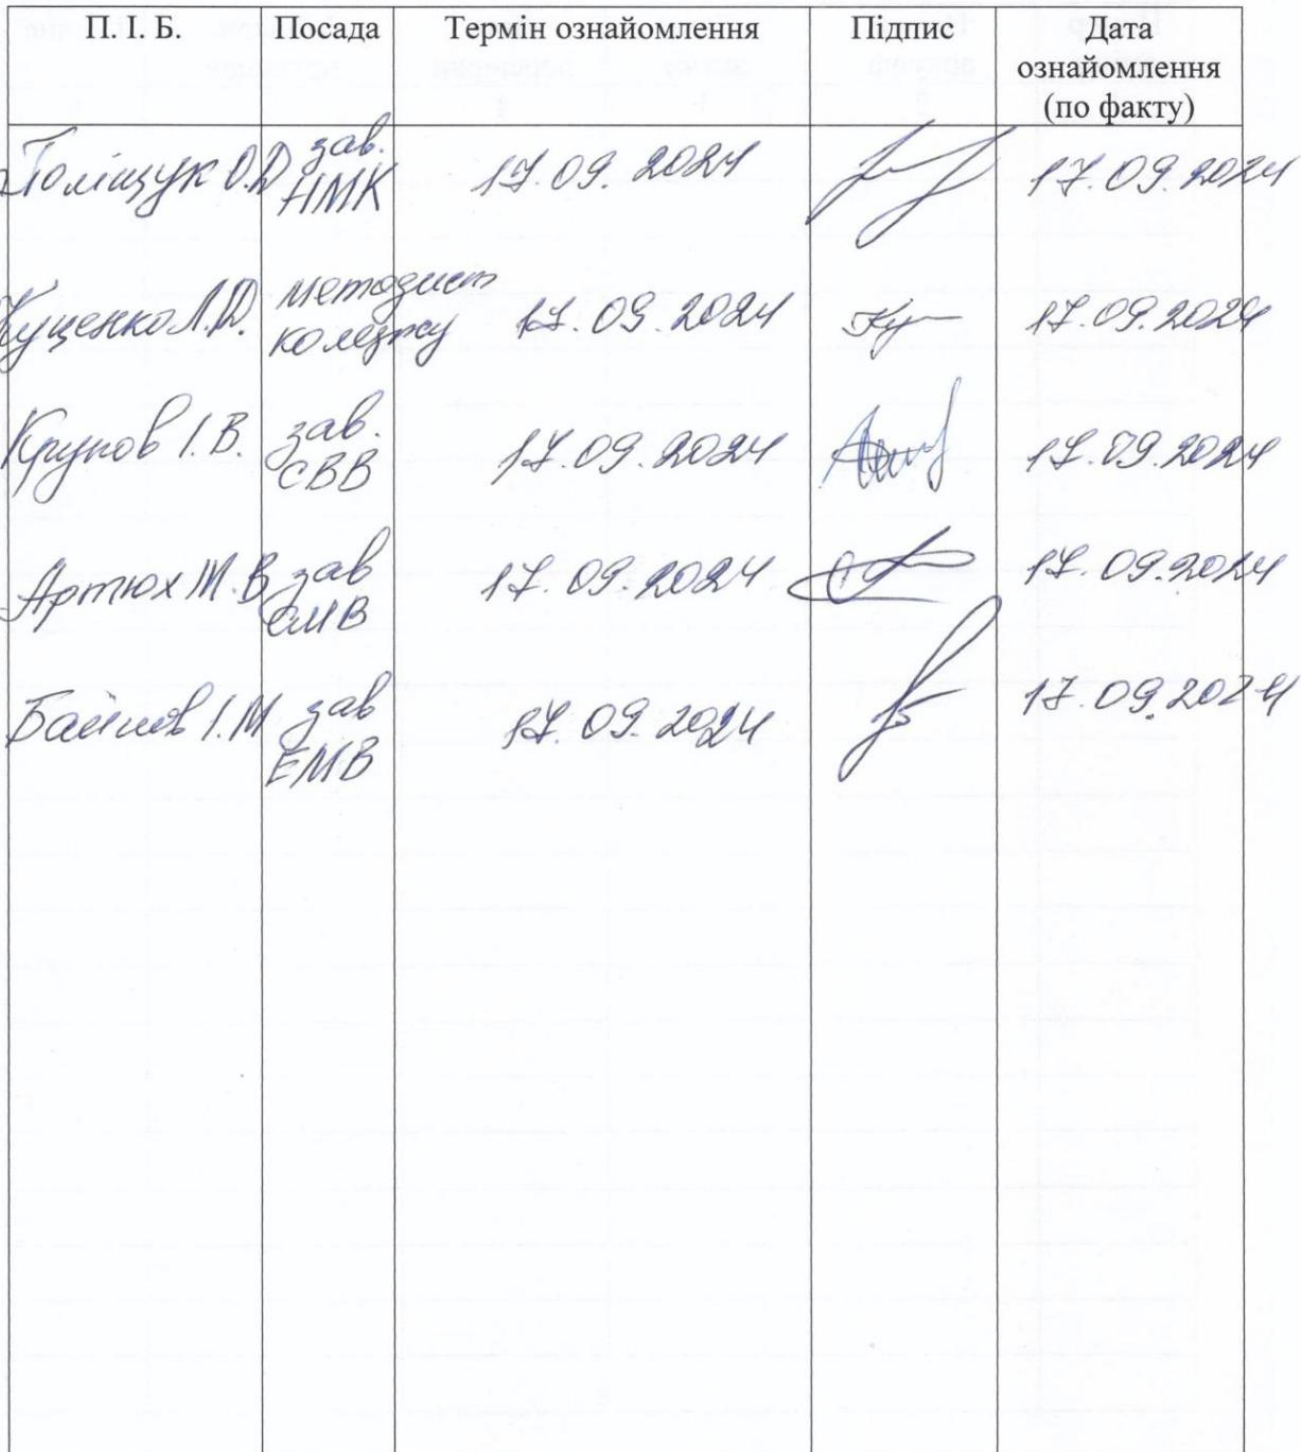 П. І. Б. Посада Термін ознайомлення Підпис Дата
ознайомлення
(по факту)
Поліщук О.Д зав. НМК 17.09.2024 17.09.2024
Куценко Л.Д. методист коледжу 17.09.2024 17.09.2024
Крупов І.В. зав. СВВ 17.09.2024 17.09.2024
Артюх М.В зав ЕМВ 17.09.2024 17.09.2024
І.М зав ЕМВ 17.09.2024 17.09.2024